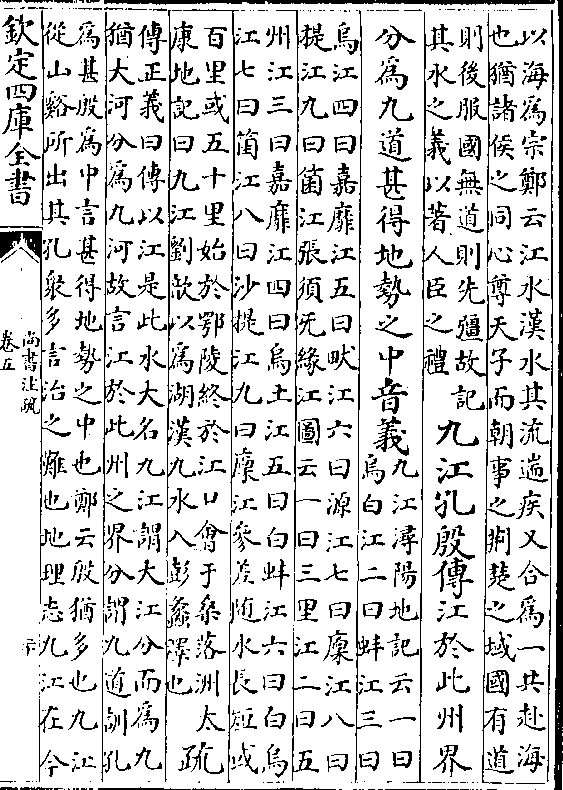 以海為宗鄭云江水漢水其流遄疾又合為一共赴海
也猶諸侯之同心尊天子而朝事之荆楚之域國有道
則後服國無道則先彊故記
其水之義以著人臣之禮
九江孔殷傳江於此州界
分為九道甚得地勢之中音義
九江潯陽地記云一曰
烏白江二曰蚌江三曰
烏江四曰嘉靡江五曰畎江六曰源江七曰廩江八曰
提江九曰箘江張須旡緣江圖云一曰三里江二曰五
州江三曰嘉靡江四曰烏土江五曰白蚌江六曰白烏
江七曰箘江八曰沙提江九曰廩江參差隨水長短或
百里或五十里始於鄂陵終於江口會于桑落洲太
康地記曰九江劉歆以為湖漢九水入彭蠡澤也
疏
傳正義曰傳以江是此水大名九江謂大江分而為九
猶大河分為九河故言江於此州之界分謂九道訓孔
為甚殷為中言甚得地勢之中也鄭云殷猶多也九江
從山谿所出其孔衆多言治之難也地理志九江在今
欽定四庫全書
尚書注疏
卷五